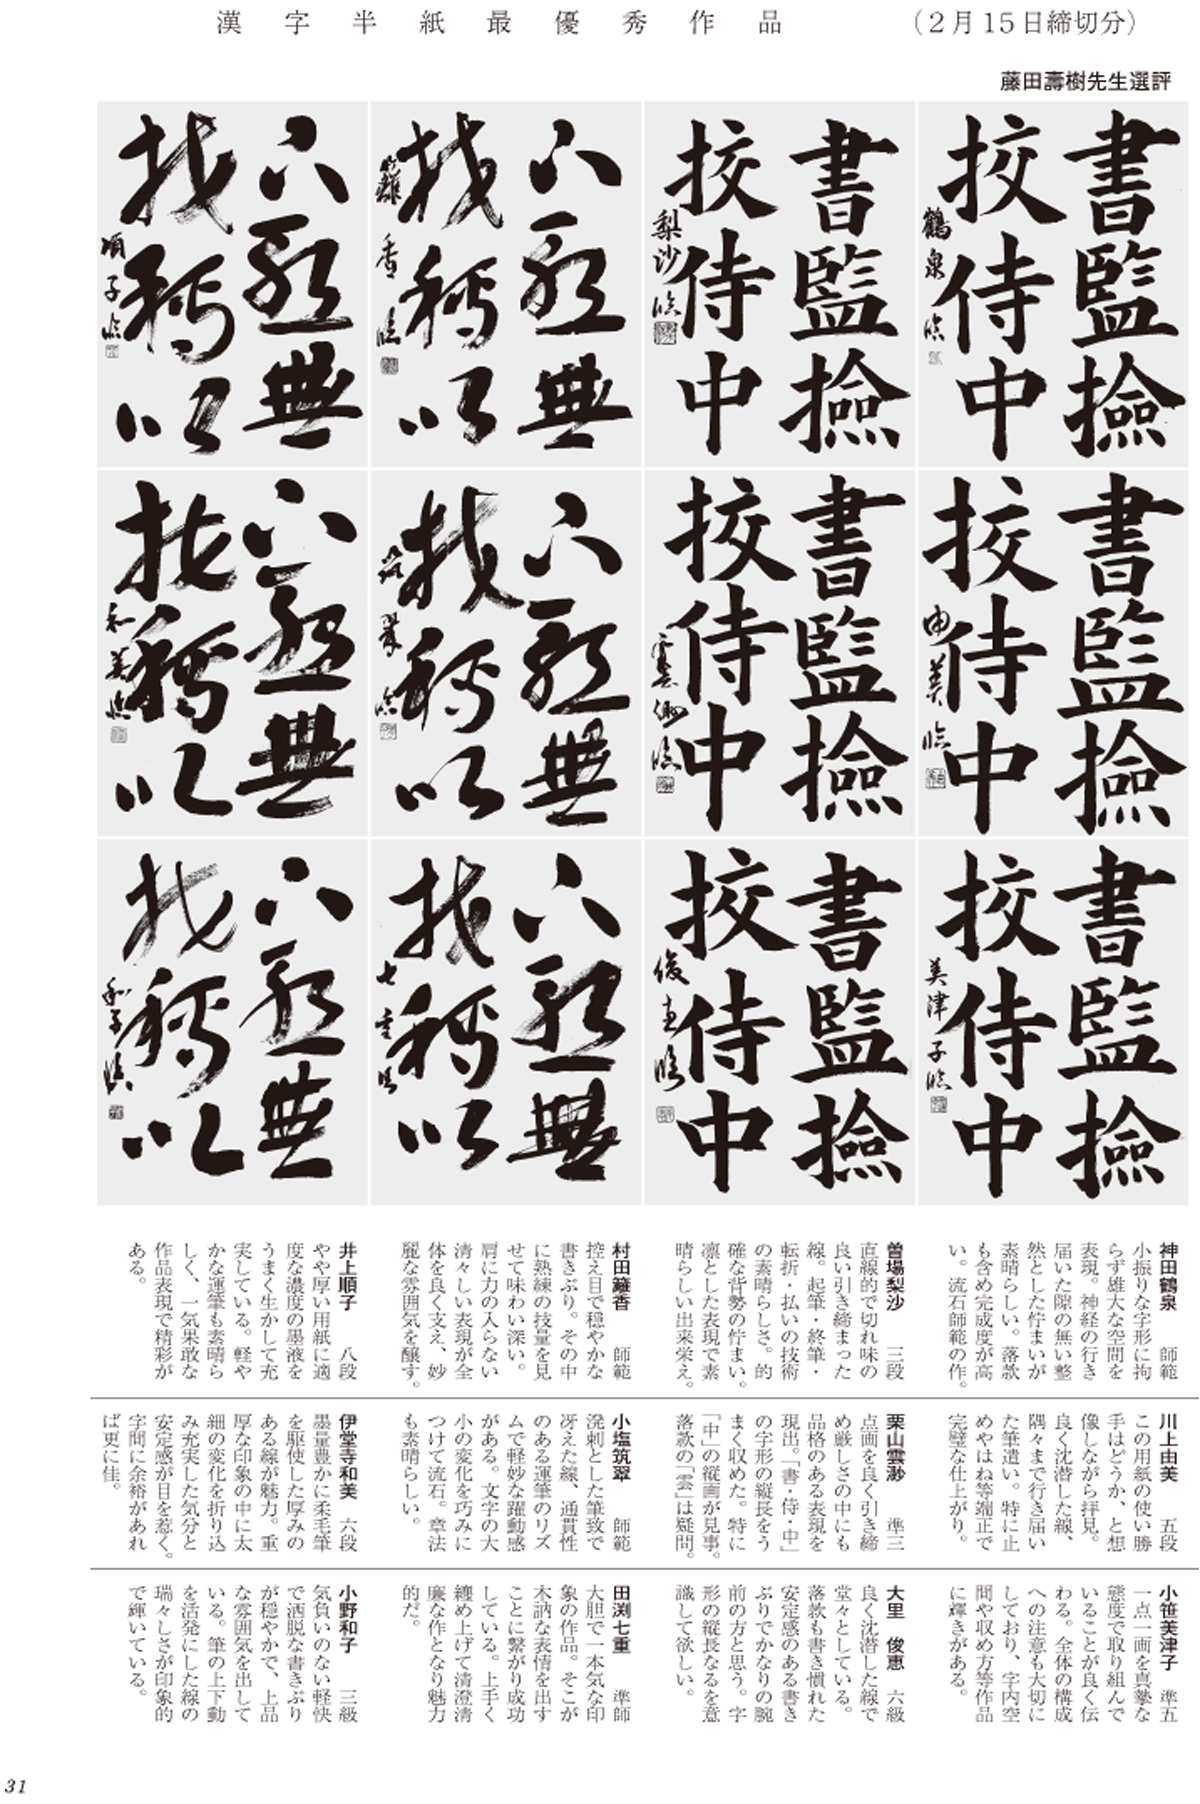 漢字半紙最優秀作品 （２月15日締切分）
藤田壽樹先生選評
書監撿
挍侍中
鶴泉臨
書監撿
挍侍中
梨沙臨
籬香臨
順子臨
書監撿
挍侍中
由美臨
書監撿
挍侍中
筑翠臨
和美臨
書監撿
挍侍中
美津子臨
書監撿
挍侍中
俊恵臨
七重臨
和子臨
神田鶴泉 師範
小振りな字形に拘
らず雄大な空間を
表現。神経の行き
届いた隙の無い整
然とした佇まいが
素晴らしい。落款
も含め完成度が高
い。流石師範の作。
曽場梨沙 三段
直線的で切れ味の
良い引き締まった
線。起筆・終筆・
転折・払いの技術
の素晴らしさ。的
確な背勢の佇まい。
凛とした表現で素
晴らしい出来栄え。
村田籬香 師範
控え目で穏やかな
書きぶり。その中
に熟練の技量を見
せて味わい深い。
肩に力の入らない
清々しい表現が全
体を良く支え、妙
麗な雰囲気を醸す。
井上順子 八段
やや厚い用紙に適
度な濃度の墨液を
うまく生かして充
実している。軽や
かな運筆も素晴ら
しく、一気果敢な
作品表現で精彩が
ある。
川上由美 五段
この用紙の使い勝
手はどうか、と想
像しながら拝見。
良く沈潜した線、
隅々まで行き届い
た筆遣い。特に止
めやはね等端正で
完璧な仕上がり。
栗山雲渺 準三
点画を良く引き締
め厳しさの中にも
品格のある表現を
現出。「書・侍・中」
の字形の縦長をう
まく収めた。特に
「中」の縦画が見事。
落款の「雲」は疑問。
小塩筑翠 師範
溌剌とした筆致で
冴えた線、通貫性
のある運筆のリズ
ムで軽妙な躍動感
がある。文字の大
小の変化を巧みに
つけて流石。章法
も素晴らしい。
伊堂寺和美 六段
墨量豊かに柔毛筆
を駆使した厚みの
ある線が魅力。重
厚な印象の中に太
細の変化を折り込
み充実した気分と
安定感が目を惹く。
字間に余裕があれ
ば更に佳。
小笹美津子 準五
一点一画を真摯な
態度で取り組んで
いることが良く伝
わる。全体の構成
への注意も大切に
しており、字内空
間や収め方等作品
に輝きがある。
大里　俊恵 六級
良く沈潜した線で
堂々としている。
落款も書き慣れた
安定感のある書き
ぶりでかなりの腕
前の方と思う。字
形の縦長なるを意
識して欲しい。
田渕七重 準師
大胆で一本気な印
象の作品。そこが
木訥な表情を出す
ことに繋がり成功
している。上手く
纏め上げて清澄清
廉な作となり魅力
的だ。
小野和子 三級
気負いのない軽快
で洒脱な書きぶり
が穏やかで、上品
な雰囲気を出して
いる。筆の上下動
を活発にした線の
瑞々しさが印象的
で輝いている。
31